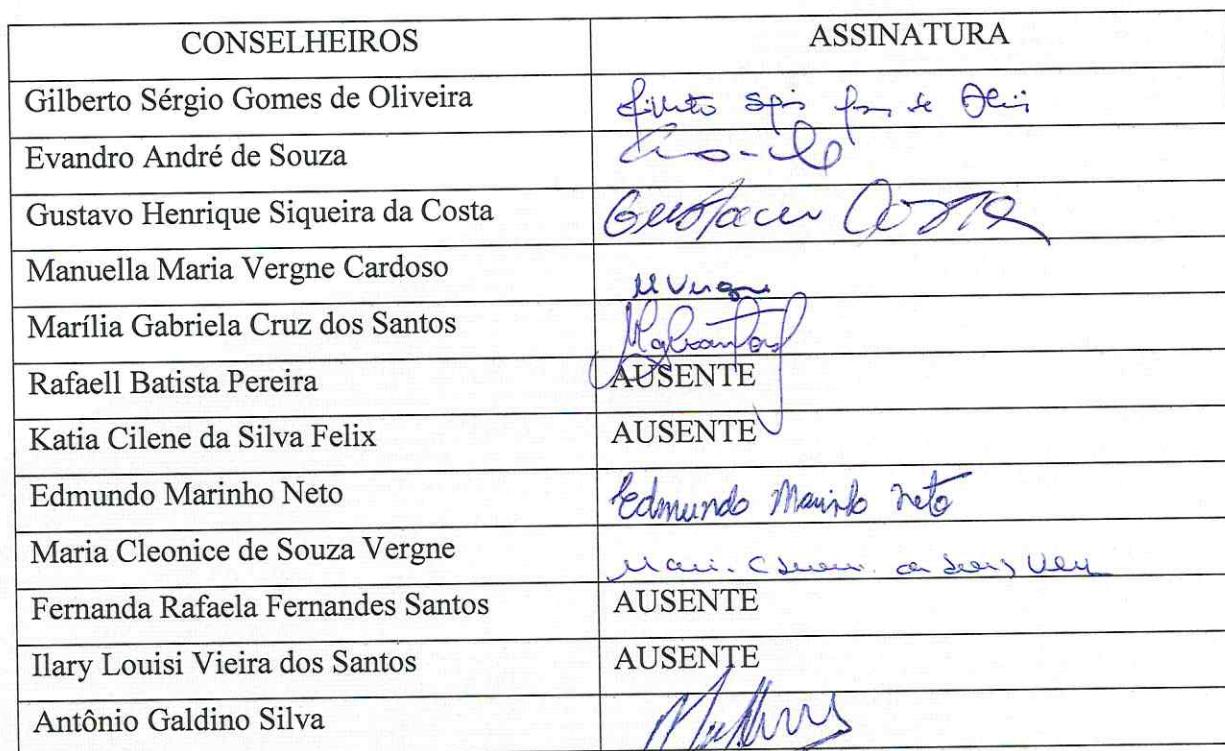 CONSELHEIROS ASSINATURA
Gilberto Sérgio Gomes de Oliveira
Evandro André de Souza
Gustavo Henrique Siqueira da Costa Gustavo Costa
Manuella Maria Vergne Cardoso M Vergne
Marília Gabriela Cruz dos Santos
Rafaell Batista Pereira AUSENTE
Katia Cilene da Silva Felix AUSENTE
Edmundo Marinho Neto Edmundo Marinho Neto
Maria Cleonice de Souza Vergne
Fernanda Rafaela Fernandes Santos AUSENTE
Ilary Louisi Vieira dos Santos AUSENTE
Antônio Galdino Silva